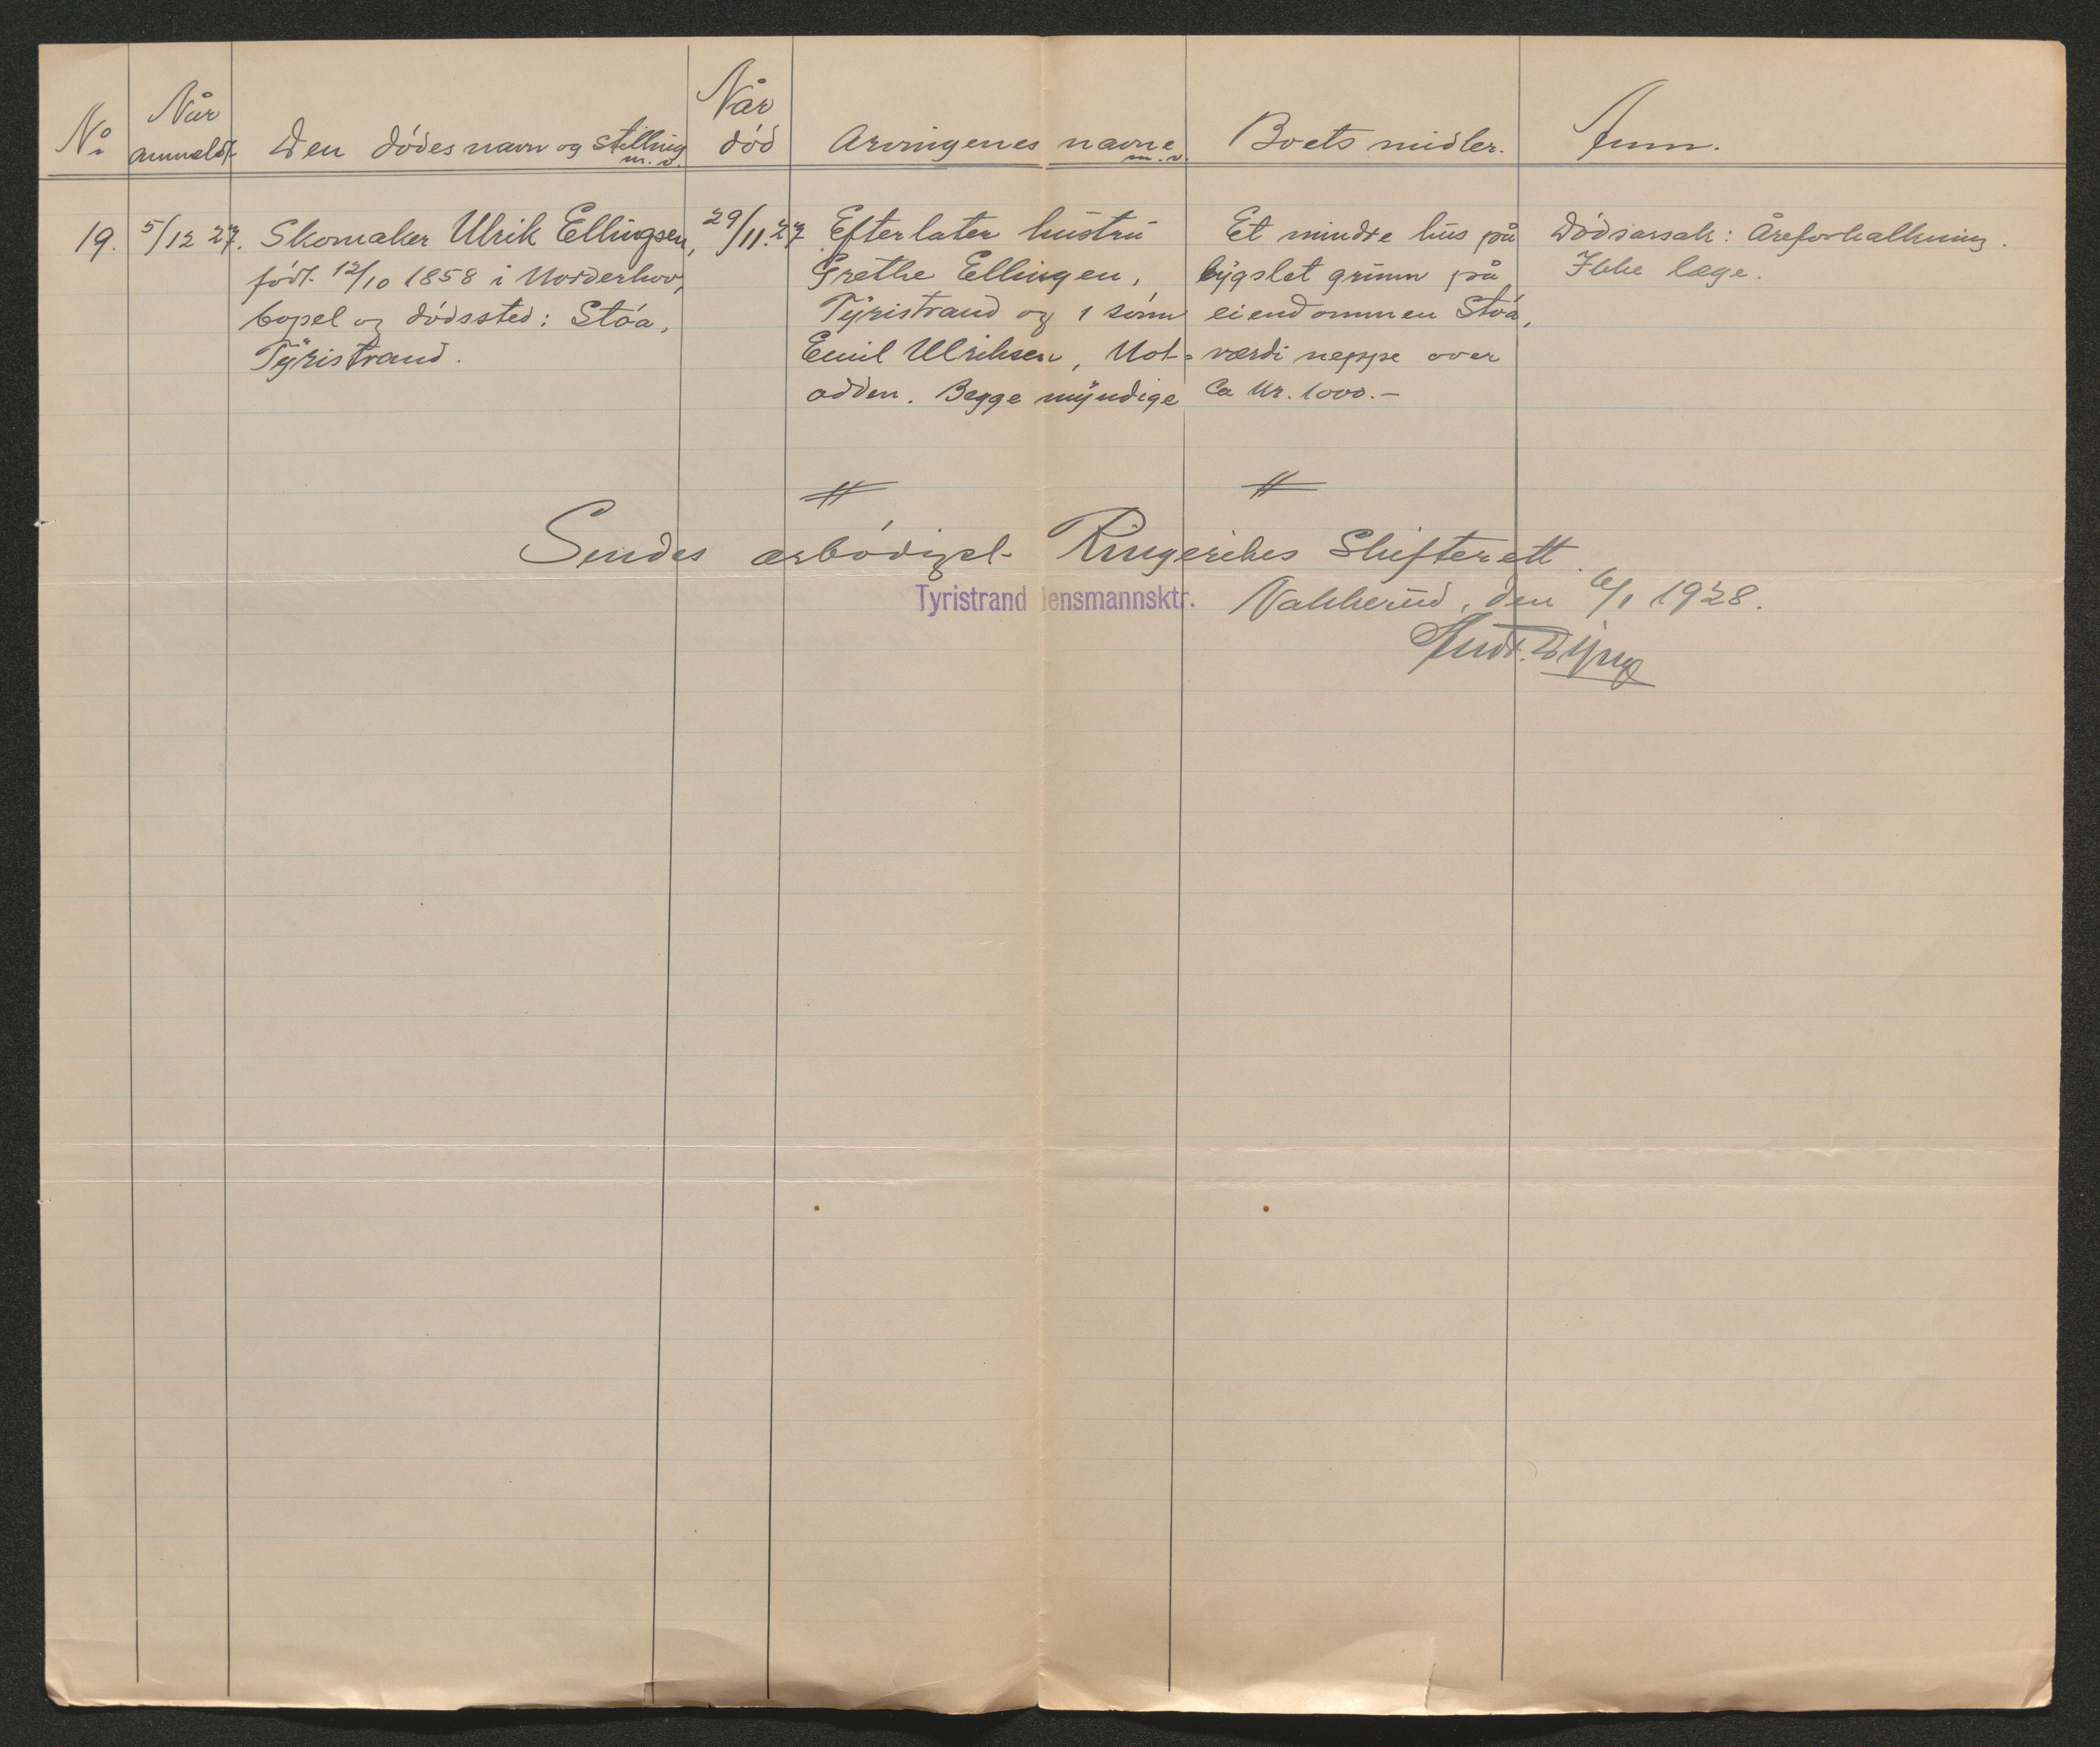 No. Når anmeldt Den dödes navn og stilling m.v. Når död Arvingenes navne m.v. Boets midler. Anm.
19. 5/12 27. Skomaker Ulrik Ellingsen, 29/11.27 Efterlater hustru Et mindre hus på Dödsarsak: Åreforkalkning.
födt 12/10 1858 i Norderhov, Grethe Ellingen, bygslet grunn på Ikke læge.
bopel og dödssted: Stöa, Tyristrand og 1 sönn eiendommen Stöa,
Tyristrand. Emil Ulriksen, Not= værdi neppe over
odden. Begge myndige ca Kr. 1000.-
Sendes ærbödigst Ringerikes Skifterett.
Tyristrand lensmannsktr. Nakkerud, den 6/1 1928.